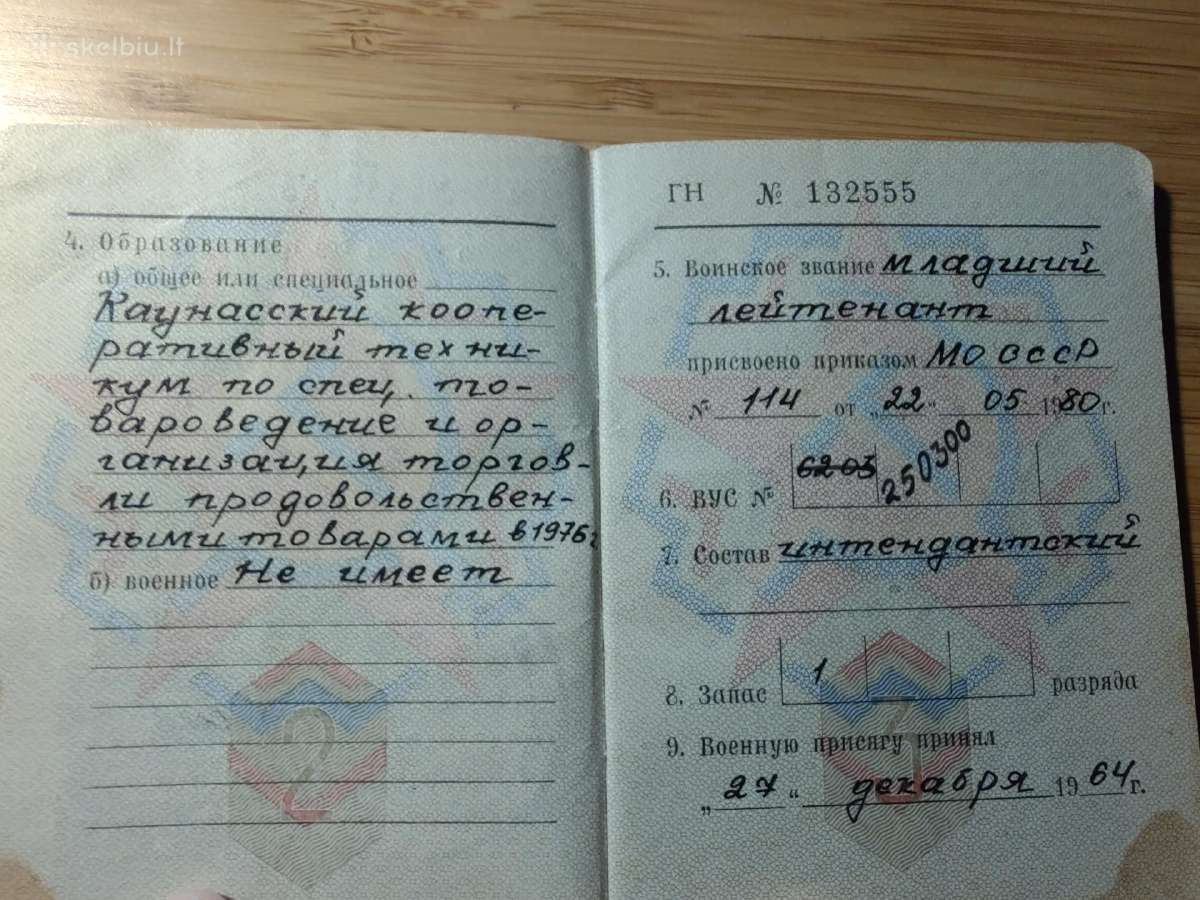 skelbiu.lt
4. Образование
а) общее или специальное
Каунасский коопе-
ративный техни-
кум по спец. то-
вароведение и ор-
ганизация торгов-
ли продовольствен-
ными товарами в 1976г
б) военное Не имеет
2
ГН № 132555
5. Воинское звание младший
лейтенант
присвоено приказом МО СССР
№ 114 от „22“ 05 1980г.
6. ВУС № 6203 250300
7. Состав интендантский
8. Запас 1 разряда
9. Военную присягу принял
„27“ декабря 1964г.